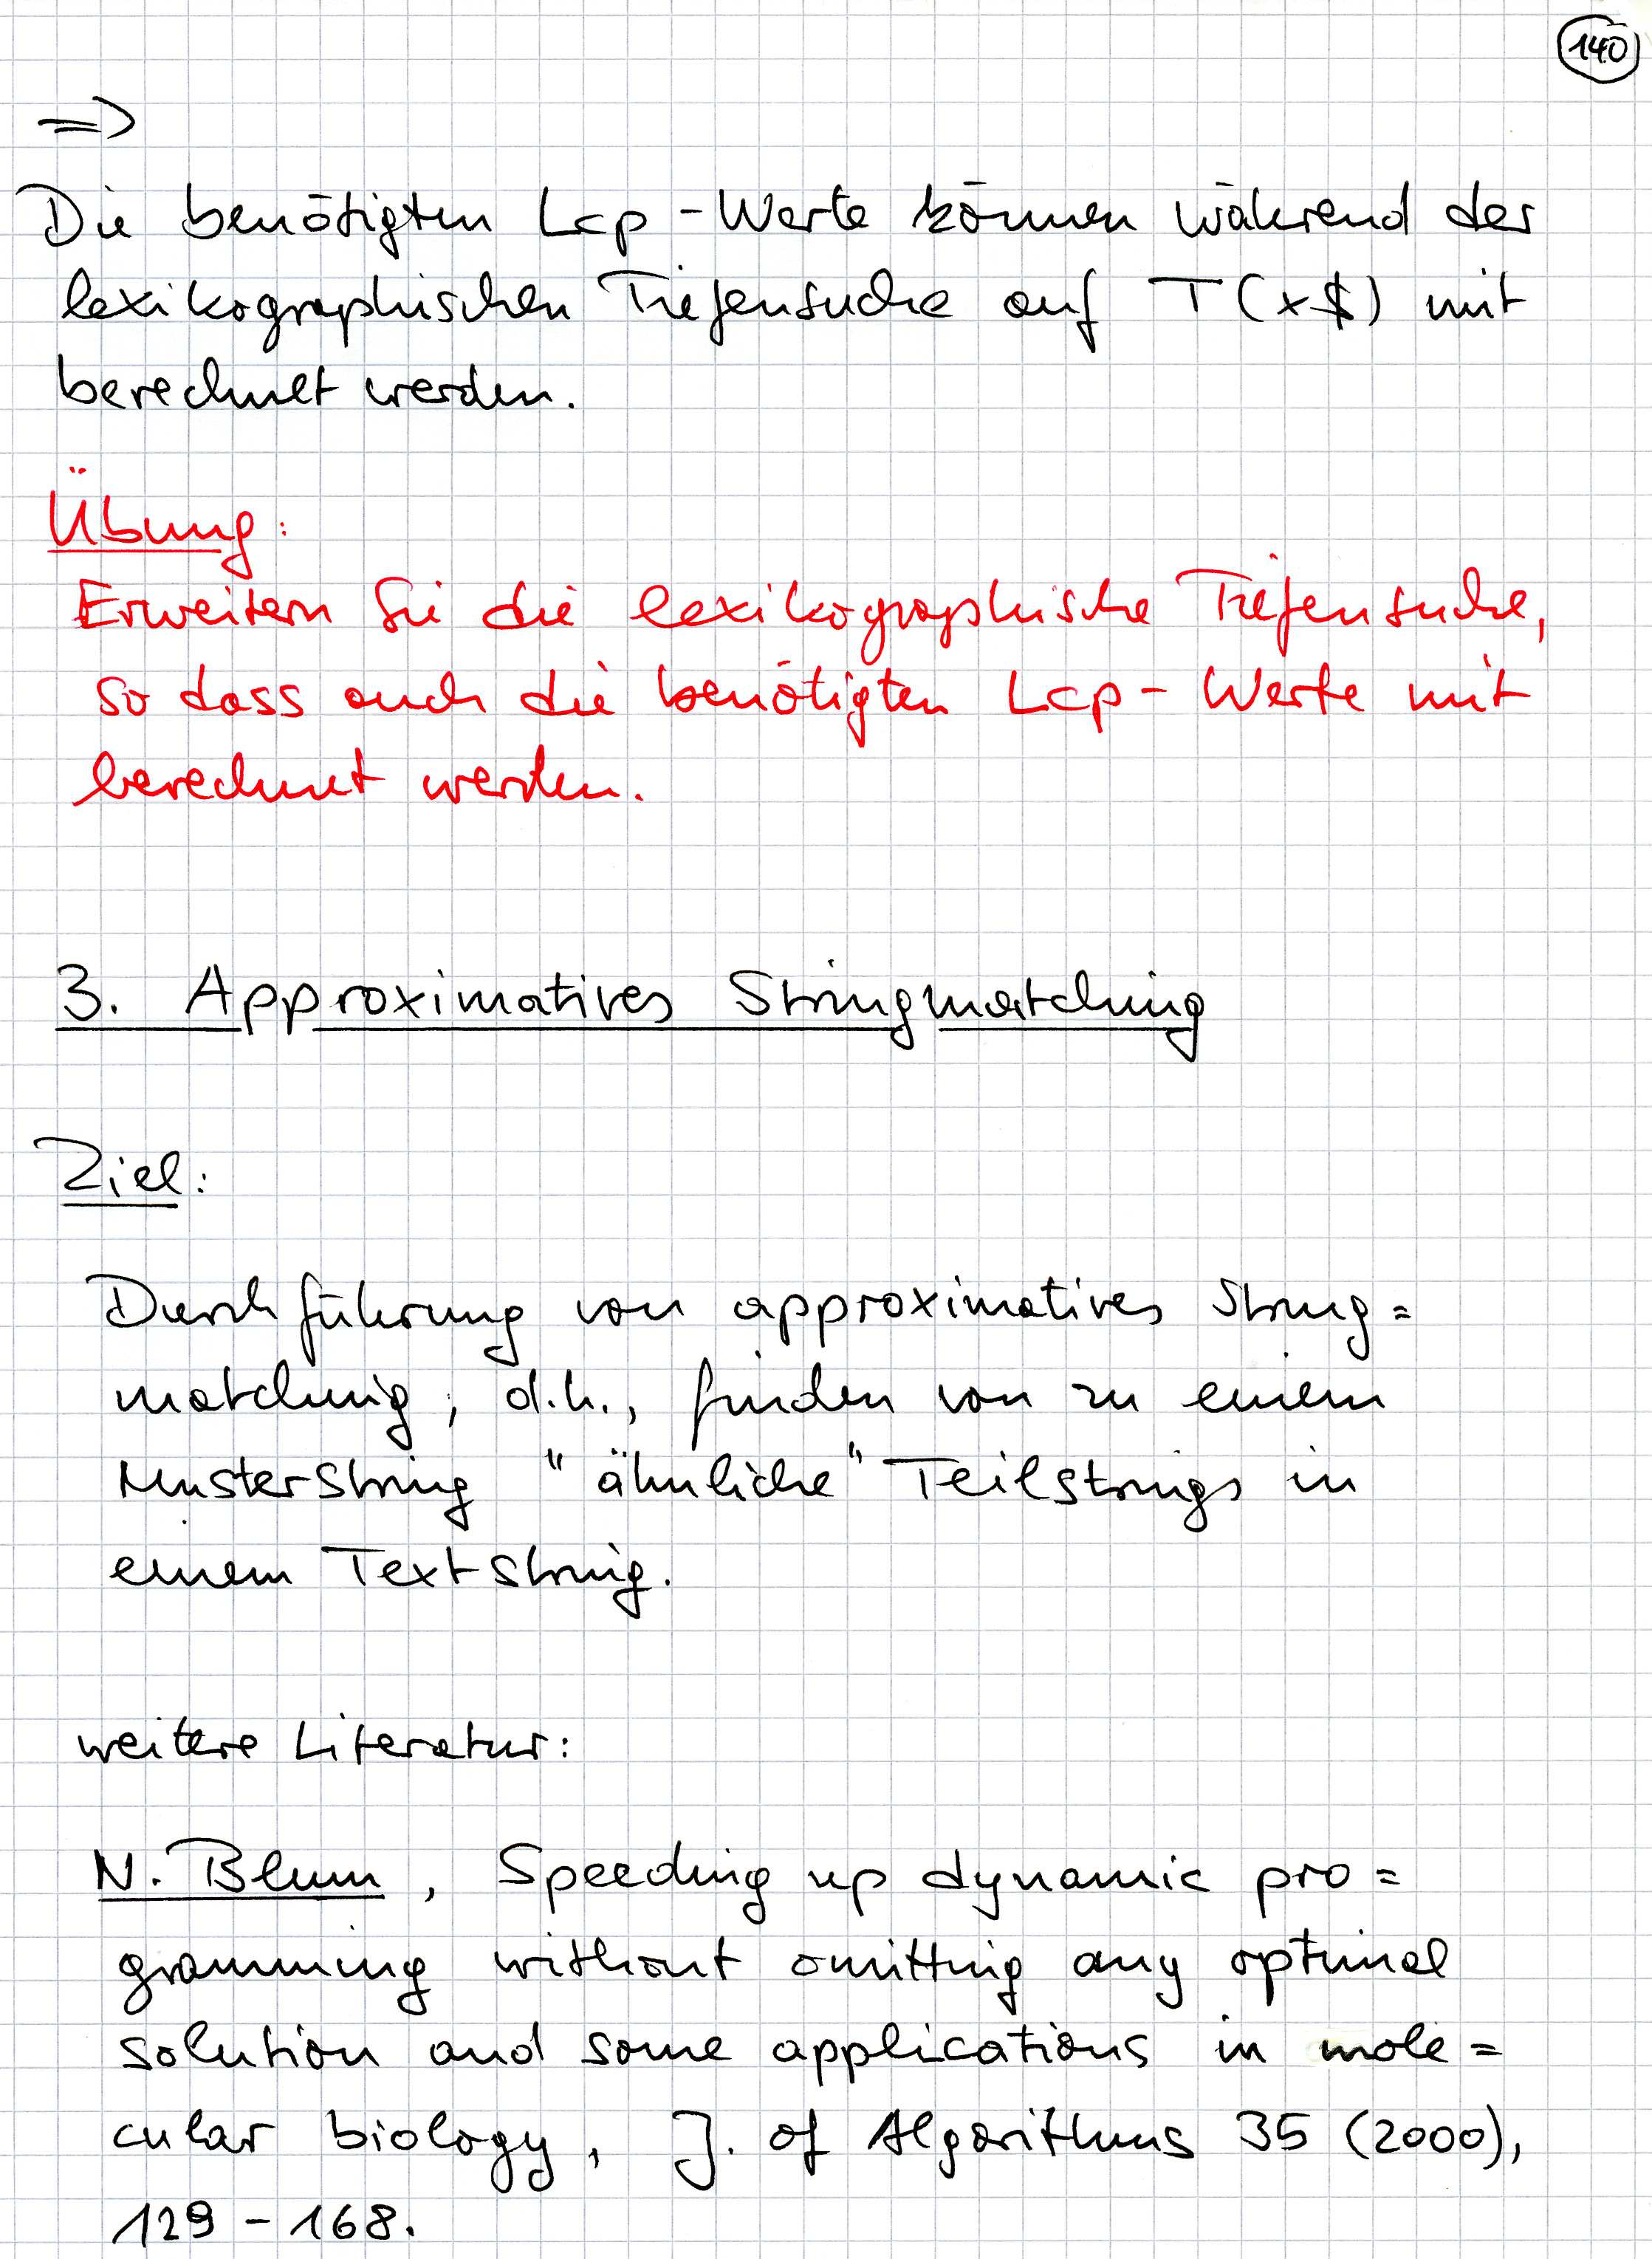 140
=>
Die benötigten Lcp-Werte können während der
lexikographischen Tiefensuche auf T(x$) mit
berechnet werden.
Übung:
Erweitern Sie die lexikographische Tiefensuche,
so dass auch die benötigten Lcp-Werte mit
berechnet werden.
3. Approximatives Stringmatching
Ziel:
Durchführung von approximatives String=
matching, d.h., finden von zu einem
Musterstring "ähnliche" Teilstrings in
einem Textstring.
weitere Literatur:
N. Blum, Speeding up dynamic pro=
gramming without omitting any optimal
solution and some applications in mole=
cular biology, J. of Algorithms 35 (2000),
129-168.